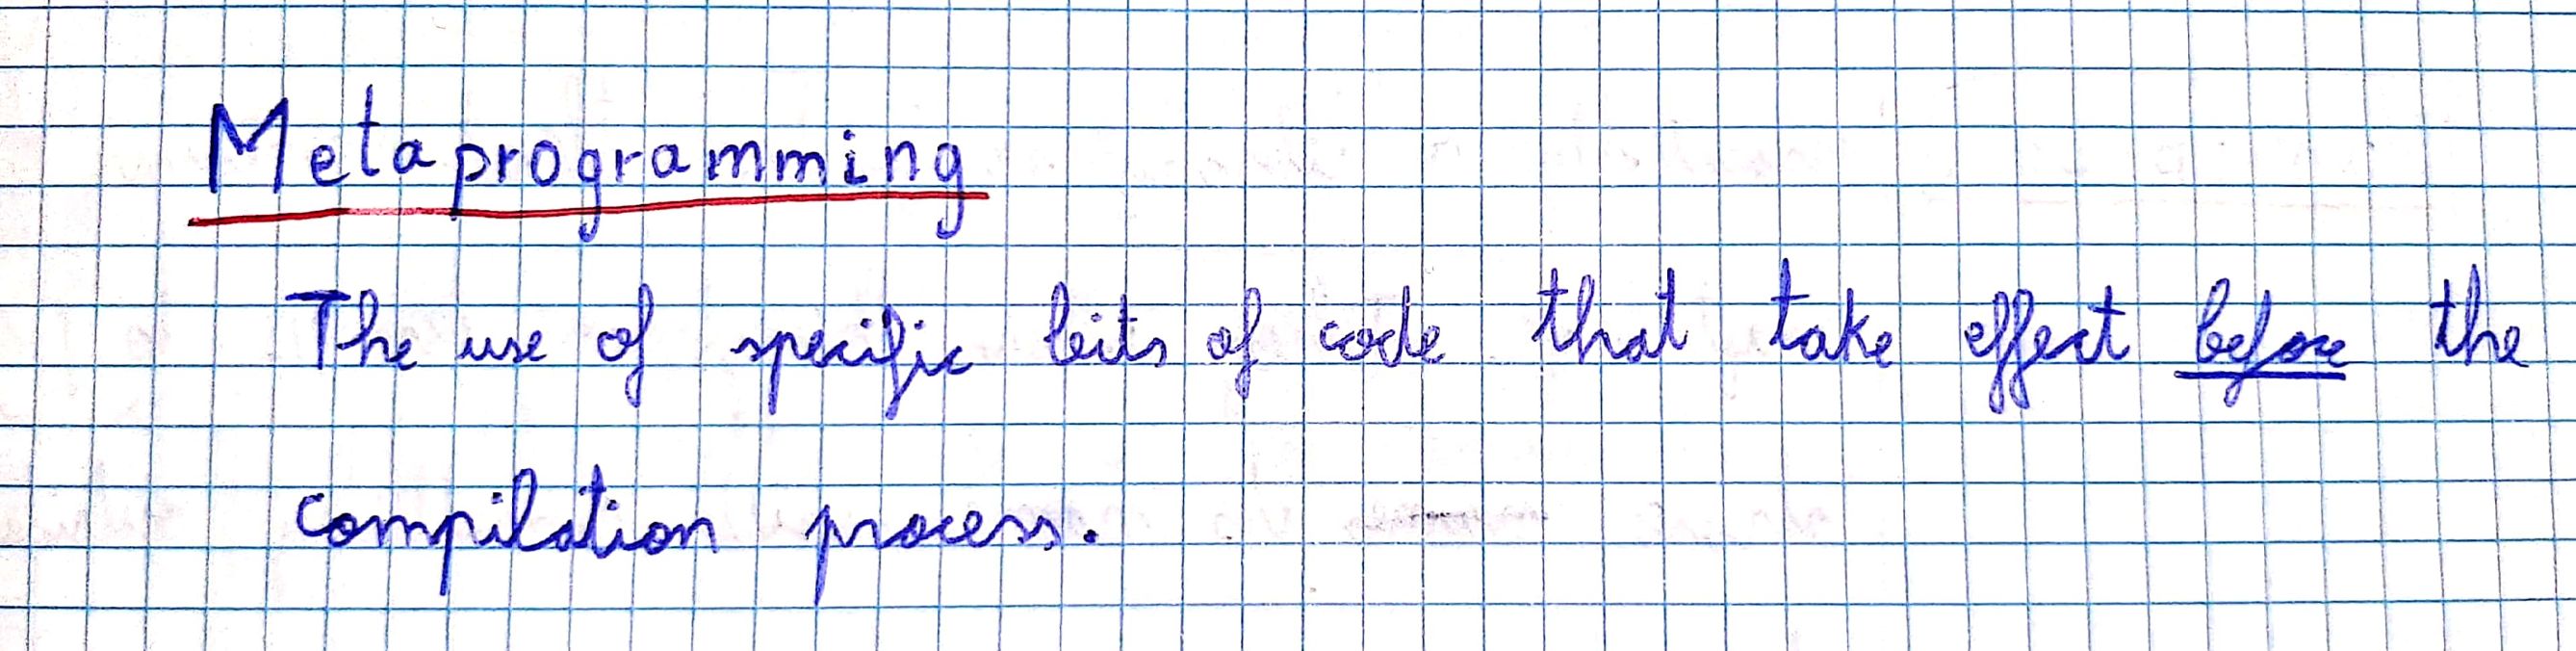 Metaprogramming
The use of specific bits of code that take effect before the
compilation process.